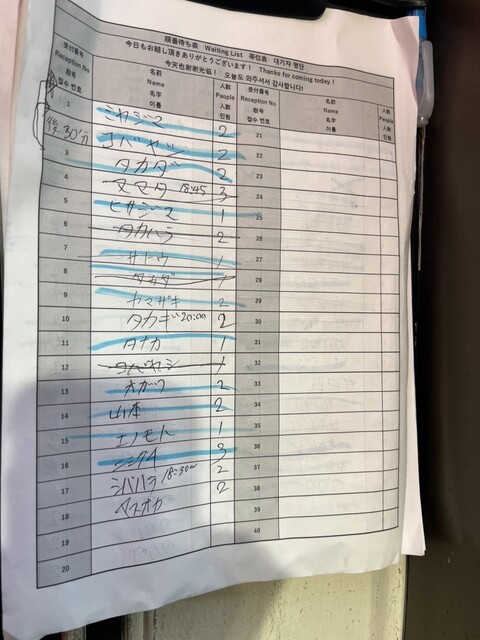 順番待ち表 Waiting List 等位表 대기자 명단
今日もお越し頂きありがとうございます! Thanks for coming today!
今天也谢谢光临! 오늘도 와주셔서 감사합니다!
受付番号 Reception No 敲号 접수 번호
名前 Name 名字 이름
人数 People 人数 인원
受付番号 Reception No 敲号 접수 번호
名前 Name 名字 이름
人数 People 人数 인원
1 ミヤジマ 2
30分
コバヤシ 2
3 タカダ 2
4 ママタ 18:45 3
5 ヒサジマ 1
6 タカハラ 2
7 サトウ 1
8
9 ヤマザキ 2
10 タカギ 20:00 2
11 タナカ 1
12
13 オガワ 2
14 山本 2
15 エノモト 1
16 3
17 シバハラ 18:30 2
18 マスオカ 2
19
20
21
22
23
24
25
26
27
28
29
30
31
32
33
34
35
36
37
38
39
40